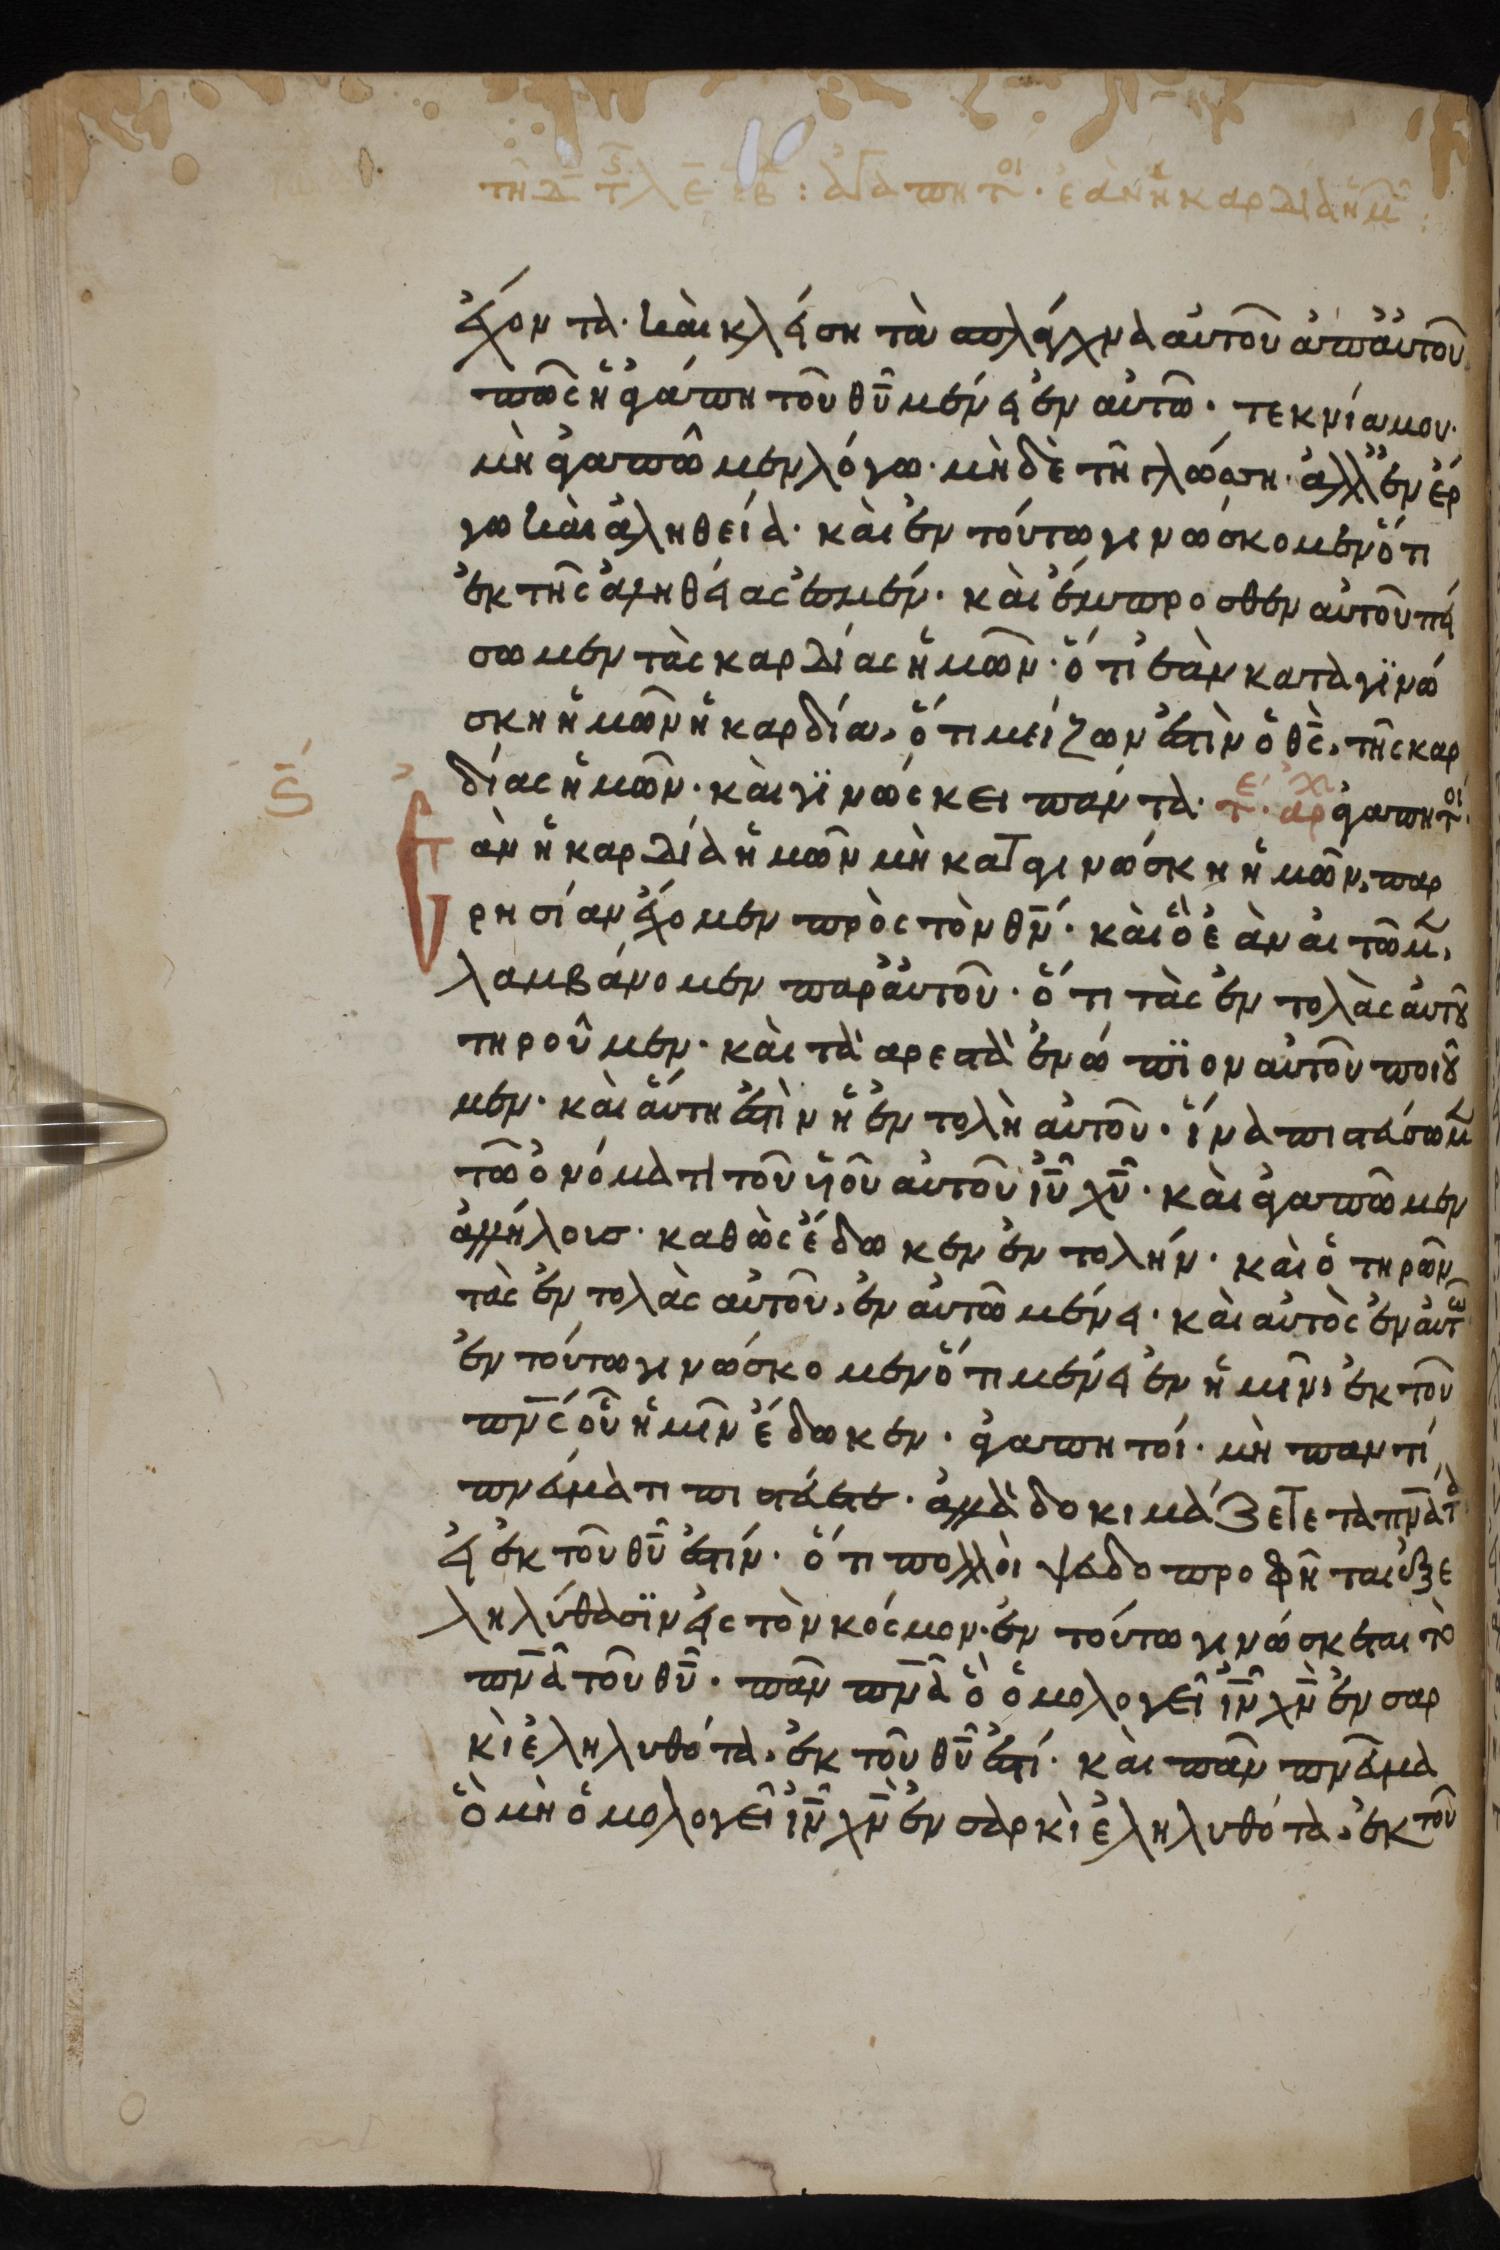 τῆ δ τ ς λε εβ : ἀγαπητοι · ἐὰν ἡ καρδία ἡμ :
ἔχοντα · καὶ κλείση τὰ σπλάγχνα αὐτοῦ ἀπ' αὐτοῦ
πῶς ἡ ἀγάπη τοῦ θῡ μένει ἐν αὐτῶ · τεκνία μου ·
μὴ ἀγαπῶμεν λόγω · μὴδὲ τῆ γλώσση · ἀλλ' ἐν ἔρ
γω καὶ ἀληθεία · καὶ ἐν τούτω γινώσκομεν ὅτι
ἐκ τῆς ἀληθείας ἐσμέν · καὶ ἔμπροσθεν αὐτοῦ πεί
σωμεν τὰς καρδίας ἡμῶν · ὅτι ἐὰν καταγϊνώ
σκη ἡμῶν ἡ καρδία, ὅτι μείζων ἐστὶν ὁ θς̄, τῆς καρ
δίας ἡμῶν · καὶ γϊνώσκει πάντα · τ · ε αρχ ἀγαπητοί ·
ς̄ Ἐὰν ἡ καρδία ἡμῶν μὴ καταγινώσκη ἡμῶν, παρ
ρησίαν ἔχομεν πρὸς τὸν θν̄ · καὶ ὃ ἐὰν αἰτῶμ,
λαμβάνομεν παρ' αὐτοῦ · ὅτι τὰς ἐντολὰς αὐτοῦ
τηροῦμεν · καὶ τὰ αρεστὰ ἐνώπϊον αὐτοῦ ποιοῦ
μεν · καὶ αὕτη ἐστὶν ἡ ἐντολὴ αὐτοῦ · ἵνα πιστεύσωμ
τῶ ὀνόματι τοῦ ὑιοῦ αὐτοῦ ἰῡ χῡ · καὶ ἀγαπῶμεν
ἀλλήλους · καθὼς ἔδωκεν ἐντολήν · καὶ ὁ τηρῶν
τὰς ἐντολὰς αὐτοῦ, ἐν αὐτῶ μένει · καὶ αὐτὸς ἐν αὐτῶ
ἐν τούτω γινώσκομεν ὅτι μένει ἐν ἡμῖν, ἐκ τοῦ
πνς̄ οὗ ἡμῖν ἔδωκεν · ἀγαπητοί · μὴ παντί
πνεύματι πιστεύετε · ἀλλὰ δοκιμάζετε τὰ πνᾱτα
εἰ ἐκ τοῦ θῡ ἐστίν · ὅτι πολλοὶ ψευδοπροφῆται ἐξε
ληλύθασϊν εἰς τὸν κόσμον · ἐν τούτω γινώσκεται τὸ
πνᾱ τοῦ θῡ · πᾶν πνᾱ ὃ ὁμολογεῖ ἰν̄ χν̄ ἐν σαρ
κὶ ἐληλυθότα, ἐκ τοῦ θῡ ἐστί · καὶ πᾶν πνεῦμα
ὃ μὴ ὁμολογεῖ ἰν̄ χν̄ ἐν σαρκὶ ἐληλυθότα, ἐκ τοῦ